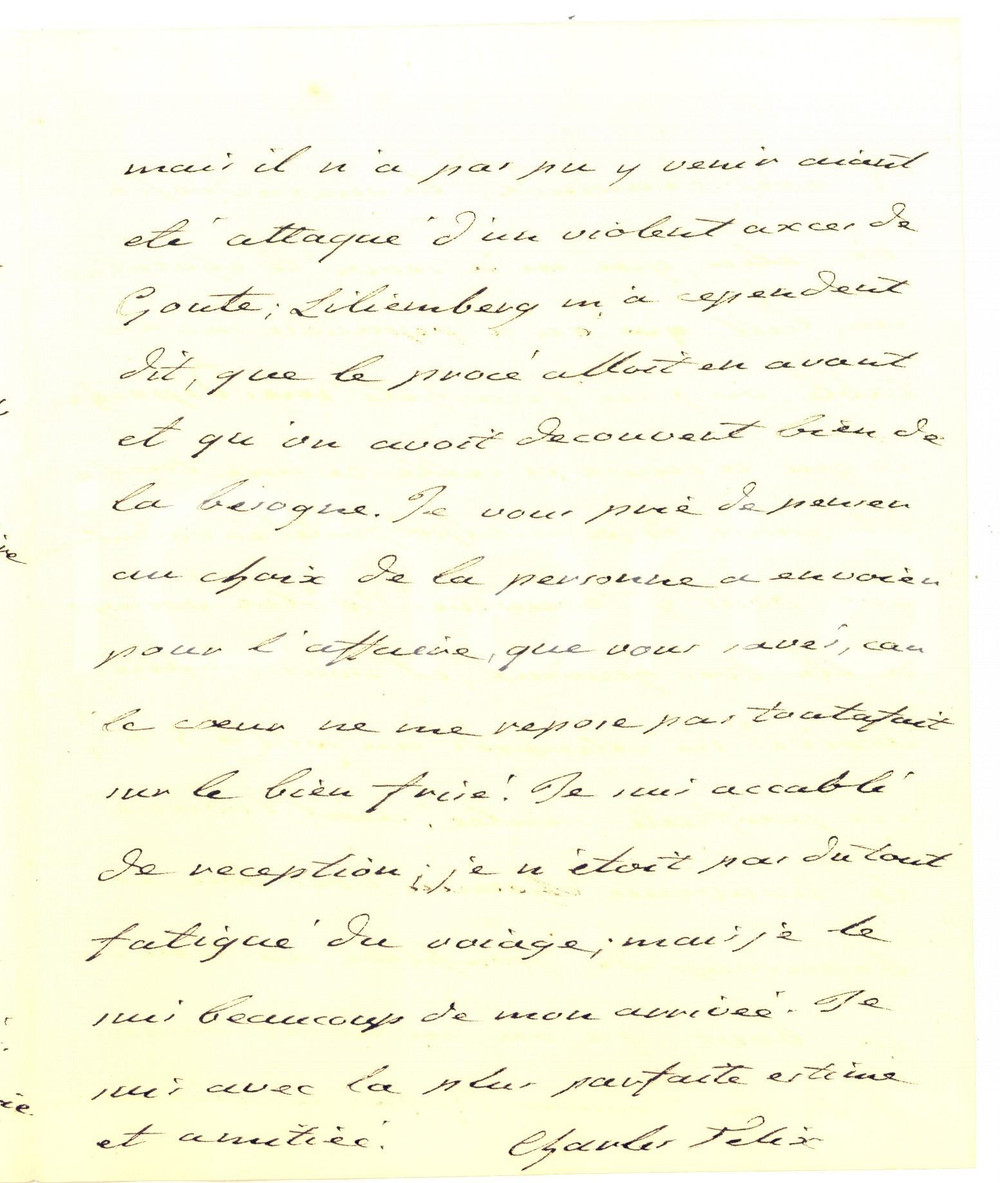 mais il n'a pas pu y venir aiant
eté attaqué d'un violent axces de
Goute; Liliemberg m'a cependent
dit, que le procé alloit en avant
et qu'on avoit decouvert bien de
la besogne. Je vous prie de penser
au choix de la personne a envoier
pour l'affaire, que vous savés, car
le cœur ne me repose pas toutafait
sur le bien frisé. Je suis accablé
de reception; je n'étoit pas du tout
fatigué du voiage; mais je le
suis beaucoup de mon arrivée. Je
suis avec la plus parfaite estime
et amitiée.
Charles Felix